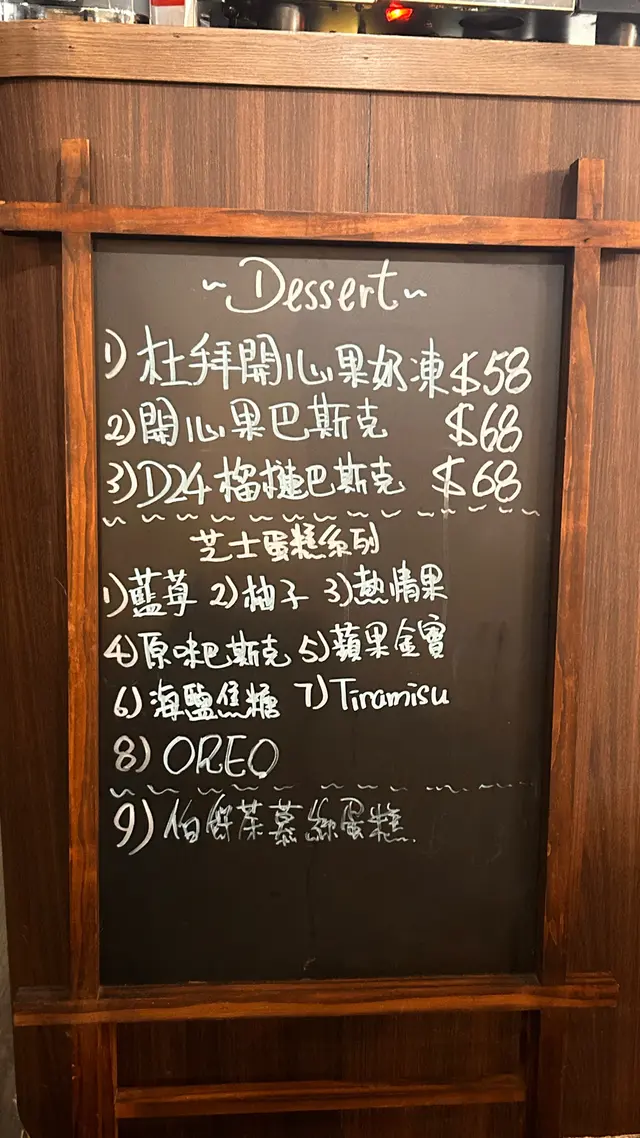 ~Dessert~
1) 杜拜開心果奶凍 $58
2) 開心果巴斯克 $68
3) D24榴槤巴斯克 $68
芝士蛋糕系列
1) 藍莓 2) 柚子 3) 熱情果
4) 原味巴斯克 5) 蘋果金寶
6) 海鹽焦糖 7) Tiramisu
8) OREO
9) 伯爵茶慕絲蛋糕